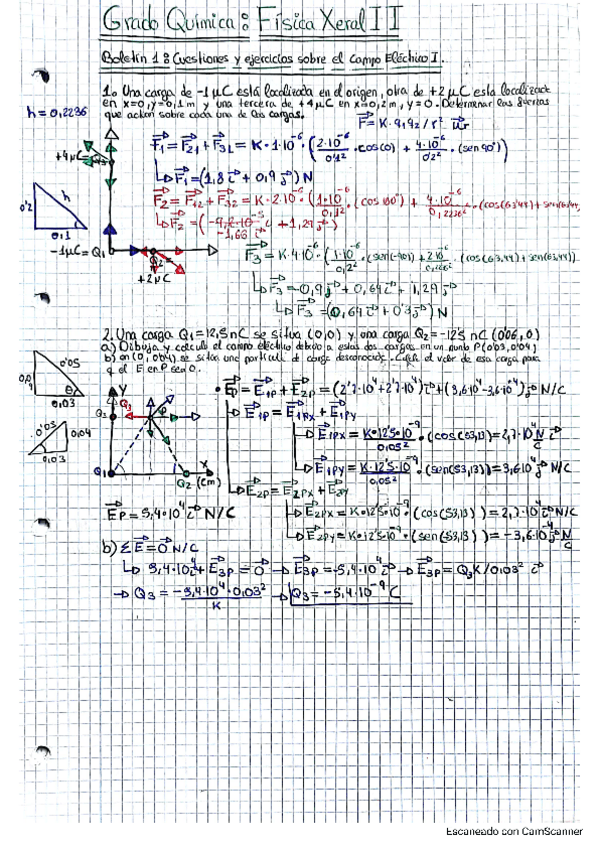 Grado Química: Física Xeral II
Boletín 1: Cuestiones y ejercicios sobre el campo Eléctrico I.
1. Una carga de -1μC está localizada en el origen, otra de +2μC esta localizada
en x=0, y=0,1m y una tercera de +4μC en x=0,2m, y=0. Determinar las fuerzas
que actúan sobre cada una de las cargas.
F = K·q₁q₂/r² ur
h=0,2236
+4μC
F₁ = F₂₁ + F₃₁ = K·1·10⁻⁶·(2·10⁻⁶/0'1²·cos(0) + 4·10⁻⁶/0'2²·(sen 90º))
F₁ = (1,8 i + 0,9 j) N
F₂ = F₁₂ + F₃₂ = K·2·10⁻⁶·(1·10⁻⁶/0,1²·(cos 180º) + 4·10⁻⁶/0,2236²·(cos(63,44) + sen(63,44)
-1,66 i
h
0'2
0,1
-1μC = Q₁
Q₂
+2μC
F₃ = K·4·10⁻⁶·(1·10⁻⁶/0,2²·(sen(-90)) +
(cos(63,44) + sen(63,44))
F₃ = -0,9 j + 0,64 i + 1,29 j
F₃ = (0,64 i + 0'3 j) N
2. Una carga Q₁=12,5nC se sitúa (0,0) y una carga Q₂=-12'5 nC (0'06,0)
a) Dibuja y calcula el campo eléctrico debido a estas dos cargas en un punto P(0'03,0'04)
b) en (0, 0'04) se sitúa una partícula de carga desconocida. el valor de esa carga para
q el E en P sea 0.
0'05
0,03
EP = E1P + E2P = (2'7·10⁴+2'7·10⁴) i + (3,6·10⁴-3,6·10⁴) j N/C
E1P = E1Px + E1Py
Y
Q₃
0'05
0,04
0,03
E1Px = K·12'5·10⁻⁹/0,05²·(cos(53,13)) = 2,7·10⁴ N/C i
E1Py = K·12'5·10⁻⁹/0,05²·(sen(53,13)) = 3,6·10⁴ j N/C
Q₁
Q₂
X
(cm)
E2P = E2Px + E2y
EP = 5,4·10⁴ i N/C
E2Px = K·12'5·10⁻⁹·(cos(53,13)) = 2,7·10⁴ i N/C
E2Py = K·12'5·10⁻⁹·(sen(53,13)) = -3,6·10⁴ j N/C
b) ΣE = 0 N/C
5,4·10⁴ i + E3P = 0 → E3P = -5,4·10⁴ i → E3P = Q₃K/0'03² i
→ Q₃ = -5,4·10⁴·0,03²/K → Q₃ = -5,4·10⁻⁹ C
Escaneado con CamScanner